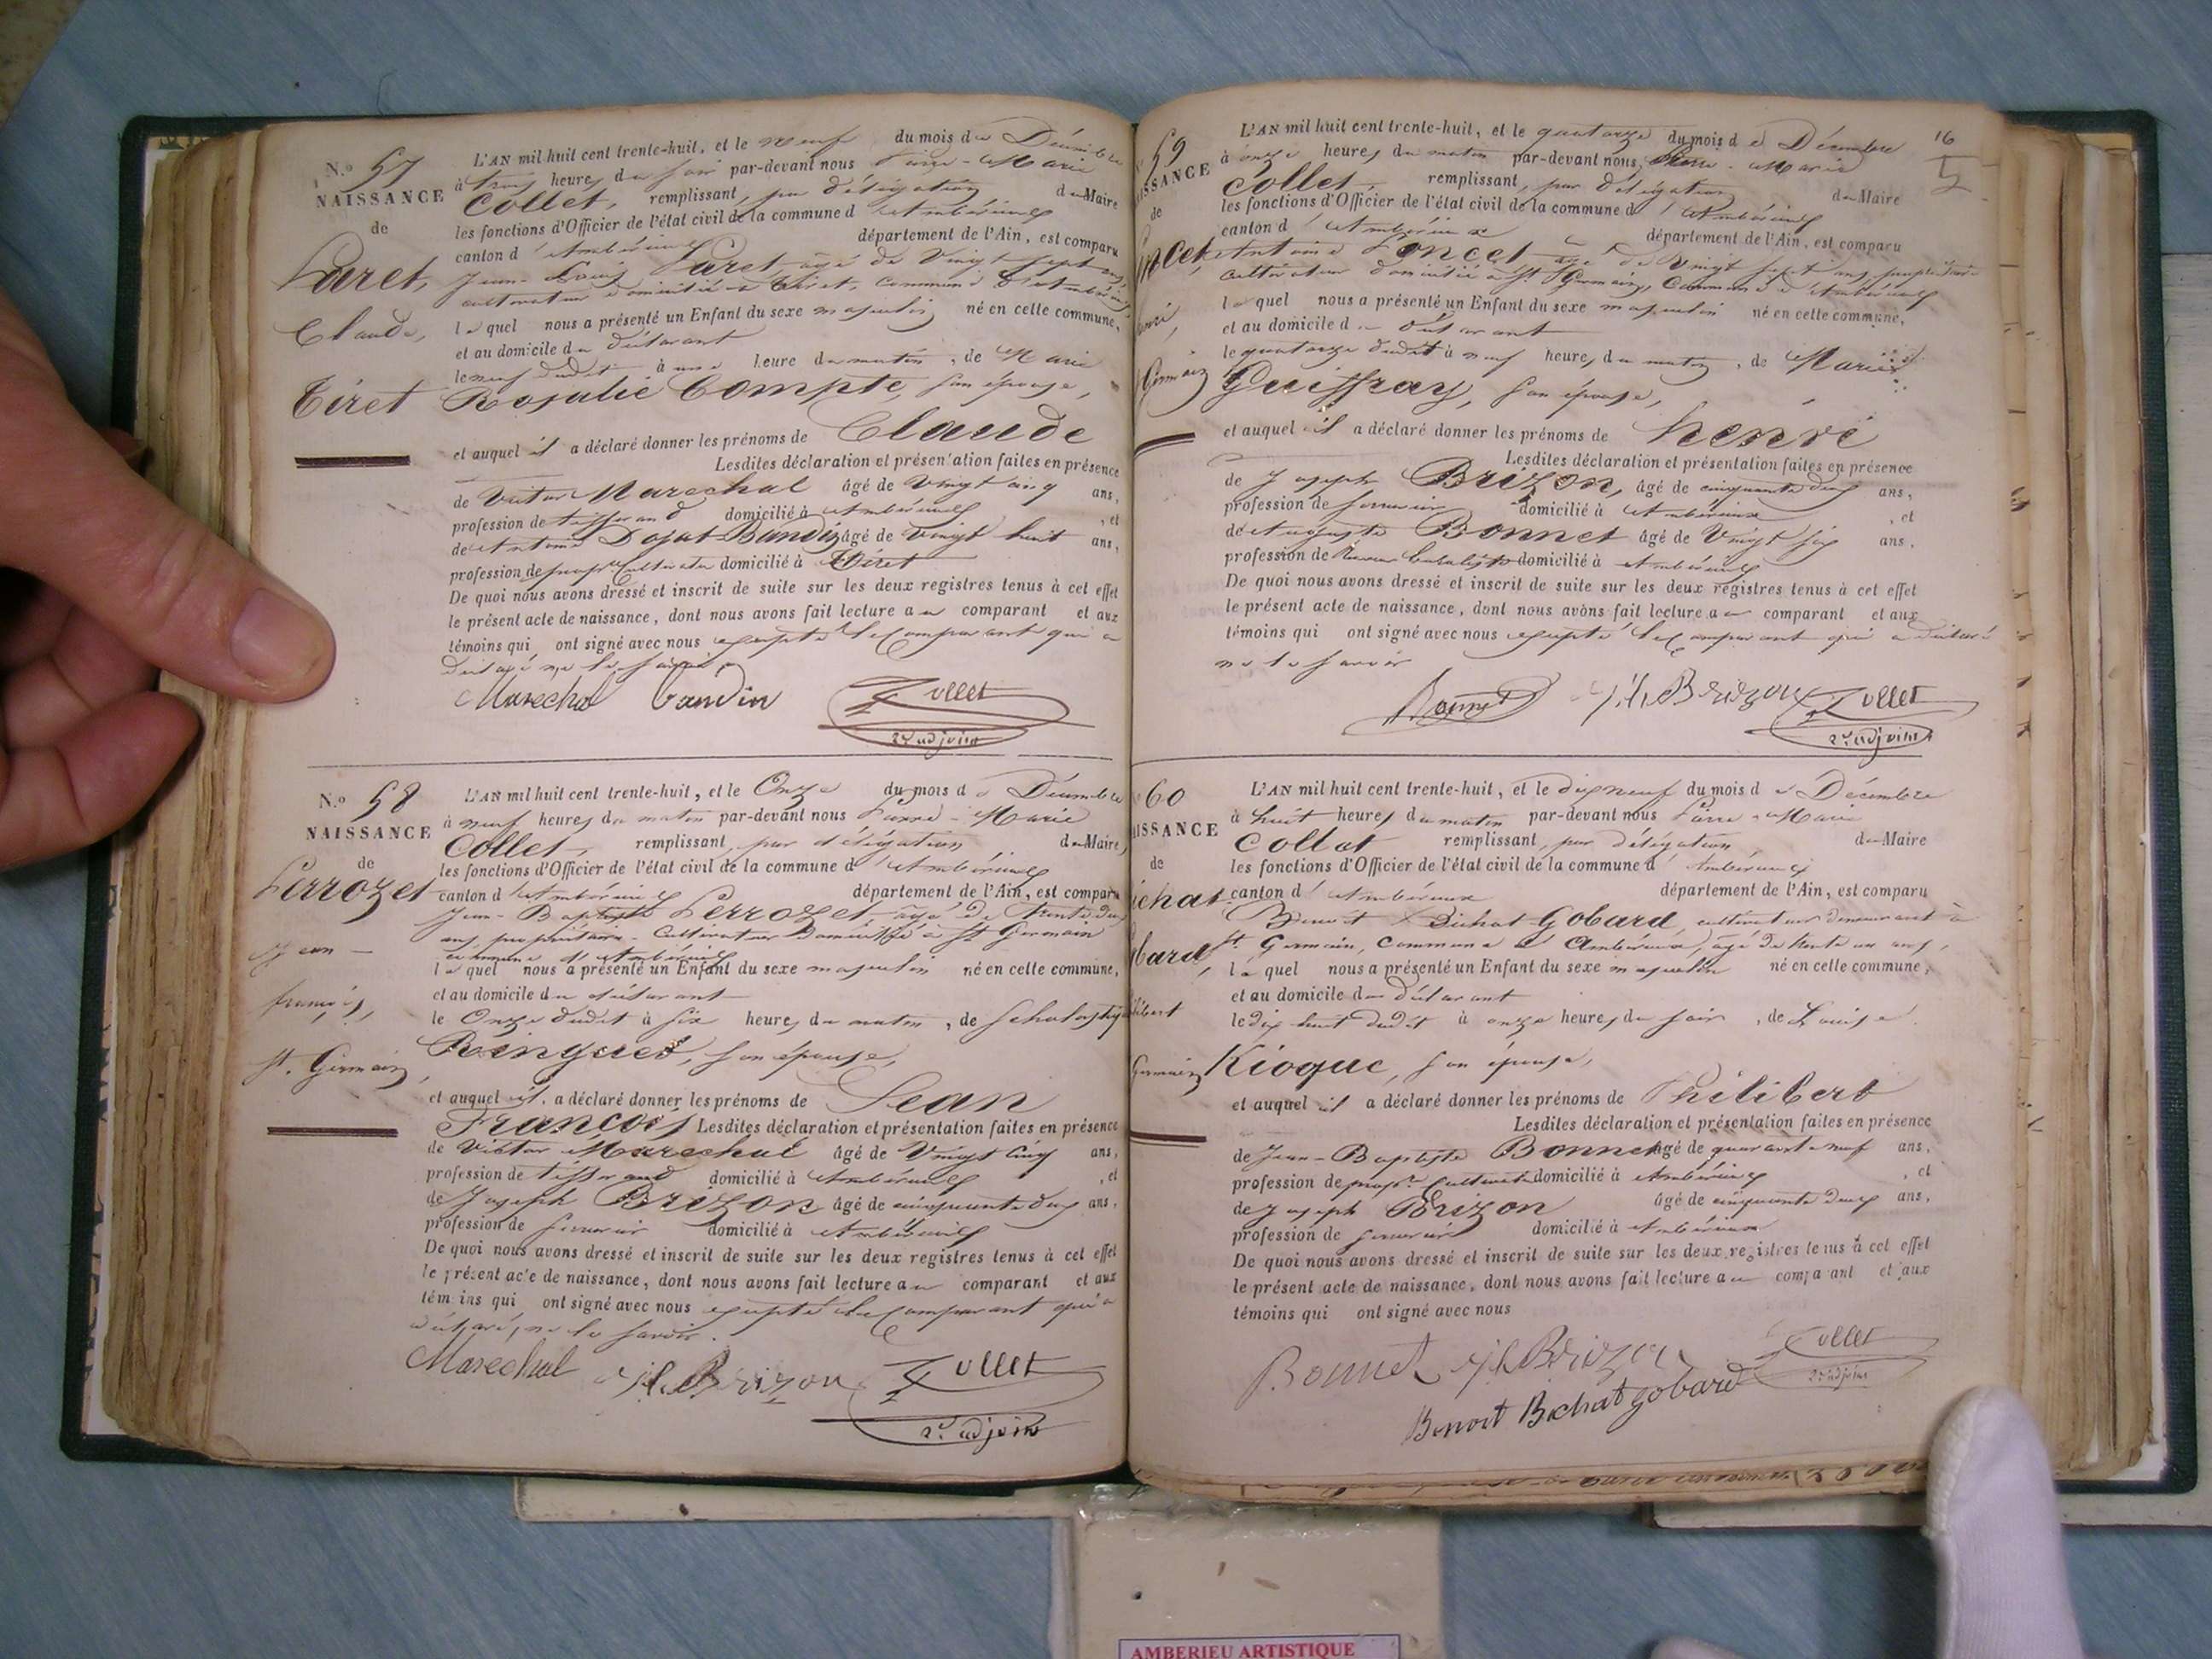 N.º 57
NAISSANCE
de
Paret,
Claude,
Tiret
L'AN mil huit cent trente-huit, et le neuf du mois de Décembre
à trois heures du soir par-devant nous Pierre-Marie
Collet, remplissant, par délégation du Maire
les fonctions d'Officier de l'état civil de la commune d'Ambérieux
canton d'Ambérieux département de l'Ain, est comparu
Jean-Louis Paret, âgé de vingt sept ans,
cultivateur domicilié à Tiret, commune d'Ambérieux
lequel nous a présenté un Enfant du sexe masculin né en cette commune,
et au domicile du déclarant
le neuf dudit à une heure du matin, de Marie
Rosalie Compte, son épouse,
et auquel il a déclaré donner les prénoms de Claude
Lesdites déclaration et présentation faites en présence
de Victor Marechal âgé de vingt cinq ans,
profession de tisserand domicilié à Ambérieux, et
de Antoine Dojat-Bandin âgé de vingt huit ans,
profession de prop.re Cultivateur domicilié à Tiret
De quoi nous avons dressé et inscrit de suite sur les deux registres tenus à cet effet
le présent acte de naissance, dont nous avons fait lecture au comparant et aux
témoins qui ont signé avec nous excepté le comparant qui a
déclaré ne le savoir
Marechal Bandin Collet
2.e adjoint
N.º 58
NAISSANCE
de
Perrozet
Jean
françois,
St. Germain
L'AN mil huit cent trente-huit, et le Onze du mois de Décembre
à neuf heures du matin par-devant nous Pierre-Marie
Collet, remplissant, par délégation du Maire
les fonctions d'Officier de l'état civil de la commune d'Ambérieux
canton d'Ambérieux département de l'Ain, est comparu
Jean-Baptiste Perrozet, âgé de trente deux
ans, propriétaire-Cultivateur domicilié à St. Germain
commune d'Ambérieux
lequel nous a présenté un Enfant du sexe masculin né en cette commune,
et au domicile du déclarant
le Onze dudit à six heures du matin, de Scholastique
Ringuet, son épouse,
et auquel il a déclaré donner les prénoms de Jean
François Lesdites déclaration et présentation faites en présence
de Victor Marechal âgé de vingt cinq ans,
profession de tisserand domicilié à Ambérieux, et
de Joseph Brizon âgé de cinquante deux ans,
profession de serrurier domicilié à Ambérieux
De quoi nous avons dressé et inscrit de suite sur les deux registres tenus à cet effet
le présent acte de naissance, dont nous avons fait lecture au comparant et aux
témoins qui ont signé avec nous excepté le comparant qui a
déclaré, ne le savoir.
Marechal Jh. Brizon Collet
2.e adjoint
16
5
59
ISSANCE
de
ncet
enri,
Germain
L'AN mil huit cent trente-huit, et le quatorze du mois de Décembre
à onze heures du matin par-devant nous, Pierre-Marie
Collet, remplissant, par délégation du Maire
les fonctions d'Officier de l'état civil de la commune d'Ambérieux
canton d'Ambérieux département de l'Ain, est comparu
Antoine Poncet âgé de vingt sept ans,
cultivateur domicilié à St. Germain, Commune d'Ambérieux
lequel nous a présenté un Enfant du sexe masculin né en cette commune,
et au domicile du déclarant
le quatorze dudit à neuf heures du matin, de Marie
Guiffray, son épouse,
et auquel il a déclaré donner les prénoms de henri
Lesdites déclaration et présentation faites en présence
de Joseph Brizon, âgé de cinquante deux ans,
profession de serrurier domicilié à Ambérieux, et
de Auguste Bonnet âgé de vingt six ans,
profession de domicilié à Ambérieux
De quoi nous avons dressé et inscrit de suite sur les deux registres tenus à cet effet
le présent acte de naissance, dont nous avons fait lecture au comparant et aux
témoins qui ont signé avec nous excepté le comparant qui a déclaré
ne le savoir
Bonnet Jh Brizon Collet
2.e adjoint
60
AISSANCE
de
ichat
bard,
ilibert
Germain
L'AN mil huit cent trente-huit, et le dix neuf du mois de Décembre
à huit heures du matin par-devant nous Pierre-Marie
Collet remplissant, par délégation du Maire
les fonctions d'Officier de l'état civil de la commune d'Ambérieux
canton d'Ambérieux département de l'Ain, est comparu
Benoit Bichat-Gobard, cultivateur demeurant à
St. Germain, Commune d'Ambérieux, âgé de trente un ans,
lequel nous a présenté un Enfant du sexe masculin né en cette commune,
et au domicile du déclarant
le dix huit dudit à onze heures du soir, de Louise
Kiogue, son épouse,
et auquel il a déclaré donner les prénoms de Philibert
Lesdites déclaration et présentation faites en présence
de Jean-Baptiste Bonnet âgé de quarante neuf ans,
profession de prop.re Cultivateur domicilié à Ambérieux, et
de Joseph Brizon âgé de cinquante deux ans,
profession de serrurier domicilié à Ambérieux
De quoi nous avons dressé et inscrit de suite sur les deux registres tenus à cet effet
le présent acte de naissance, dont nous avons fait lecture au comparant et aux
témoins qui ont signé avec nous
Bonnet Jh Brizon Collet
2.e adjoint
Benoit Bichat gobard
AMBERIEU ARTISTIQUE